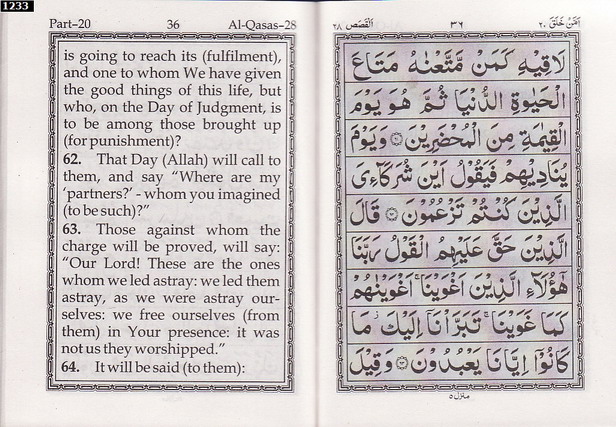 1233
Part–20 36 Al-Qasas–28
is going to reach its (fulfilment),
and one to whom We have given
the good things of this life, but
who, on the Day of Judgment, is
to be among those brought up
(for punishment)?
62. That Day (Allah) will call to
them, and say “Where are my
‘partners?’ - whom you imagined
(to be such)?”
63. Those against whom the
charge will be proved, will say:
“Our Lord! These are the ones
whom we led astray: we led them
astray, as we were astray our-
selves: we free ourselves (from
them) in Your presence: it was
not us they worshipped.”
64. It will be said (to them):
اَمَّنْ خَلَقَ ٢٠ ٣٦ اَلْقَصَص ٢٨
لَاقِيْهِ كَمَنْ مَّتَّعْنٰهُ مَتَاعَ
الْحَيٰوةِ الدُّنْيَا ثُمَّ هُوَ يَوْمَ
الْقِيٰمَةِ مِنَ الْمُحْضَرِيْنَ ۝ وَيَوْمَ
يُنَادِيْهِمْ فَيَقُوْلُ اَيْنَ شُرَكَآءِىَ
الَّذِيْنَ كُنْتُمْ تَزْعُمُوْنَ ۝ قَالَ
الَّذِيْنَ حَقَّ عَلَيْهِمُ الْقَوْلُ رَبَّنَا
هٰٓؤُلَآءِ الَّذِيْنَ اَغْوَيْنَا ۚ اَغْوَيْنٰهُمْ
كَمَا غَوَيْنَا ۚ تَبَرَّاْنَآ اِلَيْكَ ۡ مَا
كَانُوْٓا اِيَّانَا يَعْبُدُوْنَ ۝ وَقِيْلَ
منزل ٥